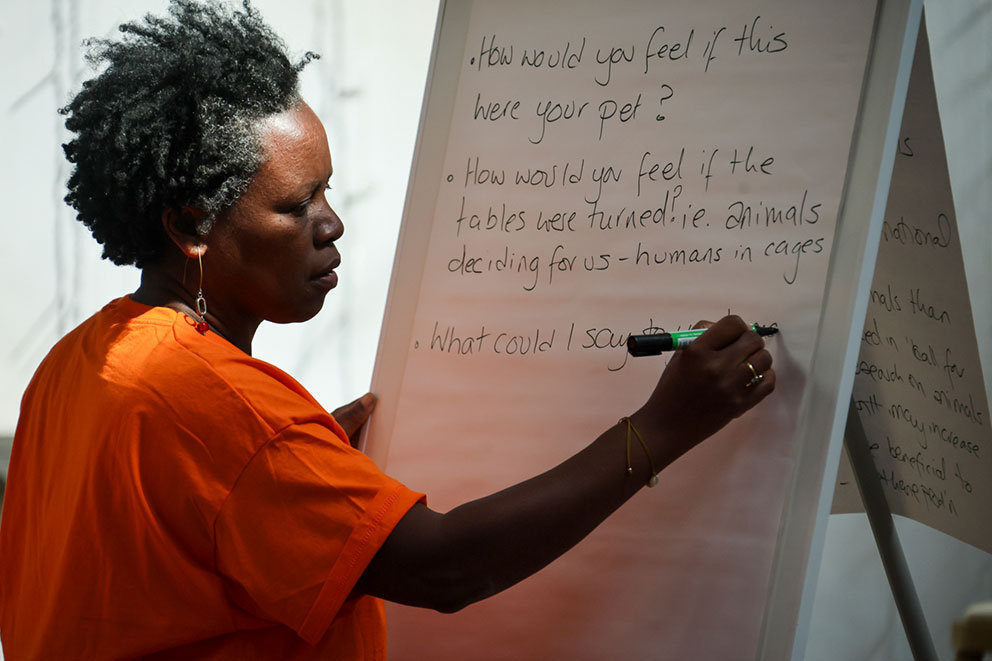 • How would you feel if this
were your pet ?
• How would you feel if the
tables were turned? ie. animals
deciding for us - humans in cages
• What could I say
national
than
for
on animals
may increase
beneficial to